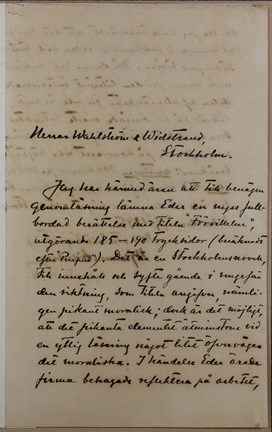 Herrar Wahlström & Widstrand,
Stockholm.
Jag har härmed äran att till benägen
genomläsning lämna Eder en nyss full-
bordad berättelse med titeln "Förvillelser",
utgörande 185–190 trycksidor (beräknadt
efter). Det är en Stockholmsnovell,
till innehåll och syfte gående i ungefär
den riktning, som titeln angifver, nämli-
gen pikant moralisk; dock är det möjligt,
att det pikanta elementet åtminstone vid
en ytlig läsning något litet öfverväger
det moraliska. I händelse Eder ärade
firma behagade reflektera på arbetet,